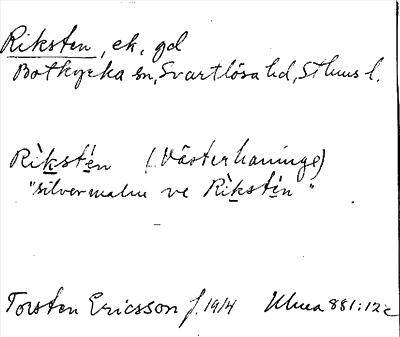 Riksten, ek. gd
Botkyrka sn, Svartlösa hd, Sthlms l.
Rìkstén (Västerhaninge)
"silvermalm ve Rìkstén"
Torsten Ericsson f. 1914 Ulma 881:12 c